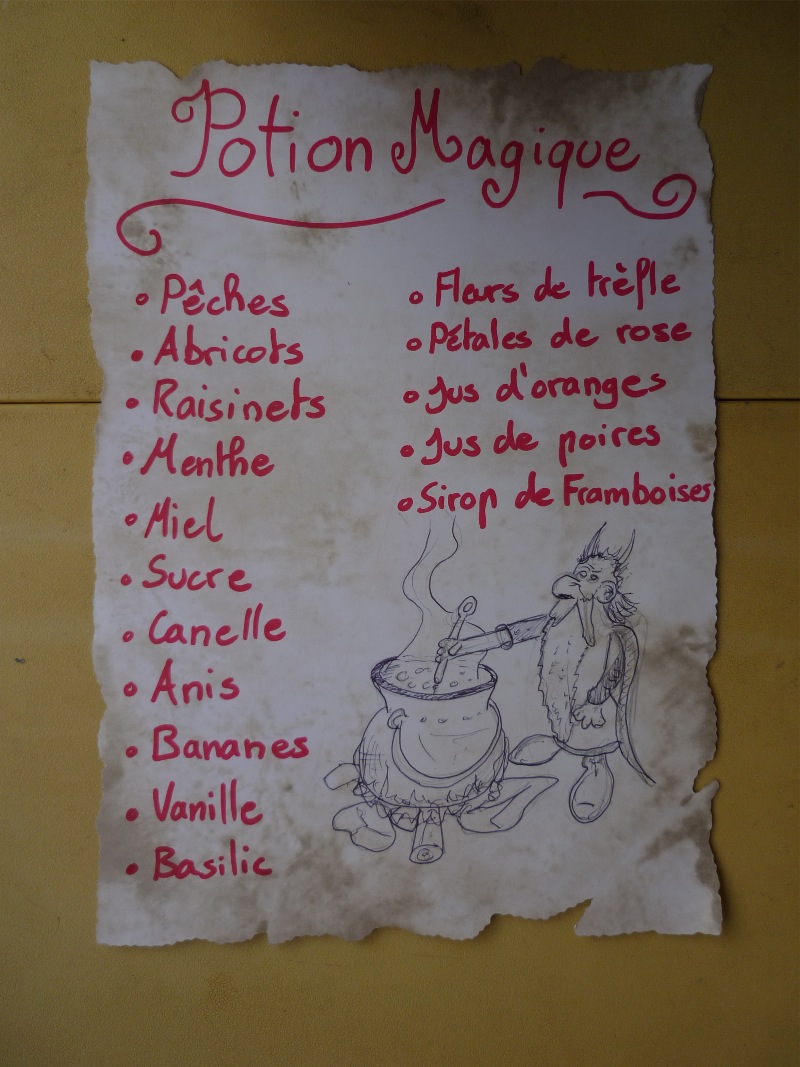 Potion Magique
• Pêches
• Abricots
• Raisinets
• Menthe
• Miel
• Sucre
• Canelle
• Anis
• Bananes
• Vanille
• Basilic
• Fleurs de trèfle
• Pétales de rose
• Jus d'oranges
• Jus de poires
• Sirop de Framboises